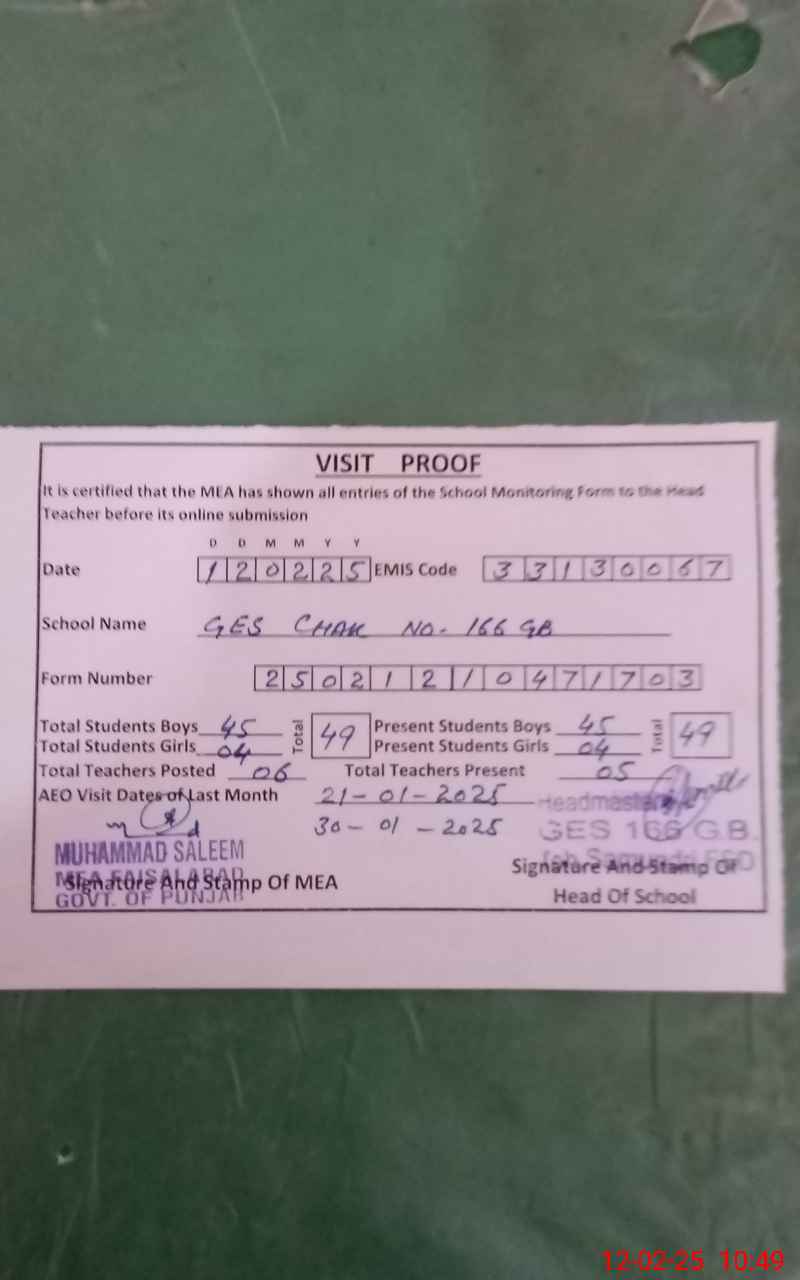 VISIT PROOF
It is certified that the MEA has shown all entries of the School Monitoring Form to the Head
Teacher before its online submission
D D M M Y Y
Date 120225 EMIS Code 33130067
School Name GES CHAK NO. 166 GB
Form Number 25021210471703
Total Students Boys 45 Total 49 Present Students Boys 45 Total 49
Total Students Girls 04 Present Students Girls 04
Total Teachers Posted 06 Total Teachers Present 05
AEO Visit Dates of Last Month 21-01-2025
30-01-2025
Headmaster
GES 166 G.B.
MUHAMMAD SALEEM
MEA FAISALABAD
GOVT. OF PUNJAB
Signature And Stamp Of MEA
Signature And Stamp Of
Head Of School
12-02-25 10:49